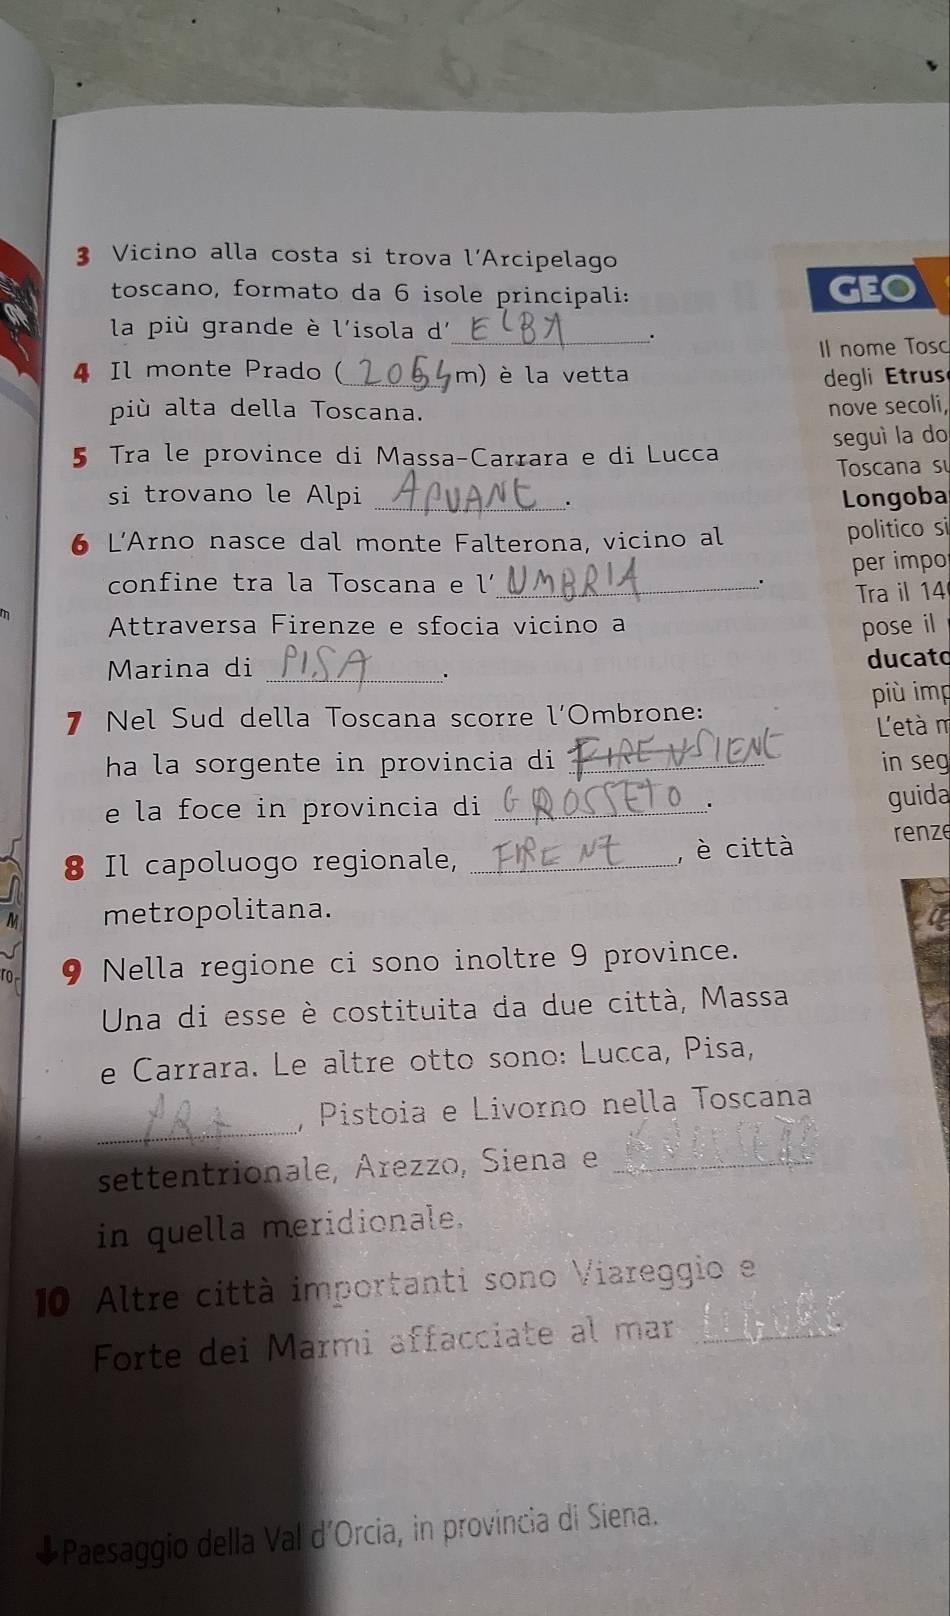 3 Vicino alla costa si trova l'Arcipelago
toscano, formato da 6 isole principali:
la più grande è l'isola d' ELBA.
4 Il monte Prado (2054 m) è la vetta
più alta della Toscana.
5 Tra le province di Massa-Carrara e di Lucca
si trovano le Alpi APUANE.
6 L'Arno nasce dal monte Falterona, vicino al
confine tra la Toscana e l' UMBRIA.
Attraversa Firenze e sfocia vicino a
Marina di PISA.
7 Nel Sud della Toscana scorre l'Ombrone:
ha la sorgente in provincia di SIENE
e la foce in provincia di GROSSETO.
8 Il capoluogo regionale, FIRENZ, è città
metropolitana.
9 Nella regione ci sono inoltre 9 province.
Una di esse è costituita da due città, Massa
e Carrara. Le altre otto sono: Lucca, Pisa,
, Pistoia e Livorno nella Toscana
settentrionale, Arezzo, Siena e
in quella meridionale.
10 Altre città importanti sono Viareggio e
Forte dei Marmi affacciate al mar LIGURE.
↓ Paesaggio della Val d'Orcia, in provincia di Siena.
GEO
Il nome Tosc
degli Etrus
nove secoli,
seguì la do
Toscana su
Longoba
politico si
per impo
Tra il 14
pose il
ducato
più imp
L'età m
in seg
guida
renze
m
M
ro